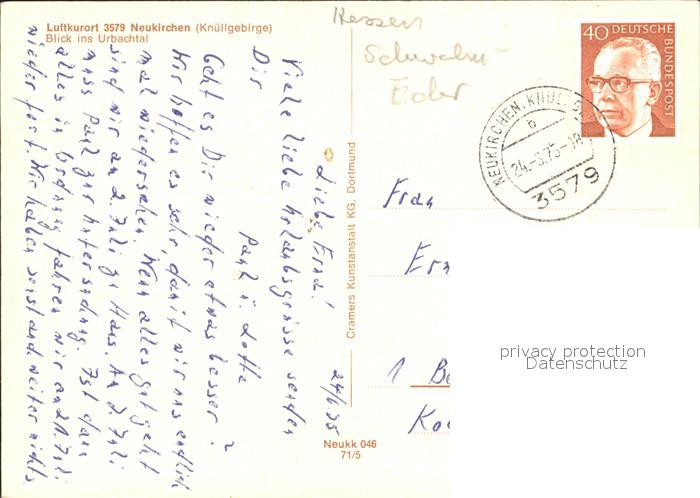 Luftkurort 3579 Neukirchen (Knüllgebirge)
Blick ins Urbachtal
Hessen
Schwalm-
Eder
40 DEUTSCHE BUNDESPOST
NEUKIRCHEN, KNÜLLGEB
b
24.-6.75-18
3579
24/6.75
Liebe Erna!
Viele liebe Urlaubsgrüsse senden
Dir
Paul u. Lotte
Geht es Dir wieder etwas besser?
Wir hoffen es sehr, damit wir uns endlich
mal wiedersehen. Wenn alles gut geht
sind wir am 2. Juli zu Haus. Am 3. Juli
muss Paul zur Untersuchung. Ist dann
alles in Ordnung fahren wir am 21. Juli
wieder fort. Wir haben weiter nichts
Cramers Kunstanstalt KG, Dortmund
Neukk 046
71/5
Frau
Ern
1 Be
Ko
privacy protection
Datenschutz